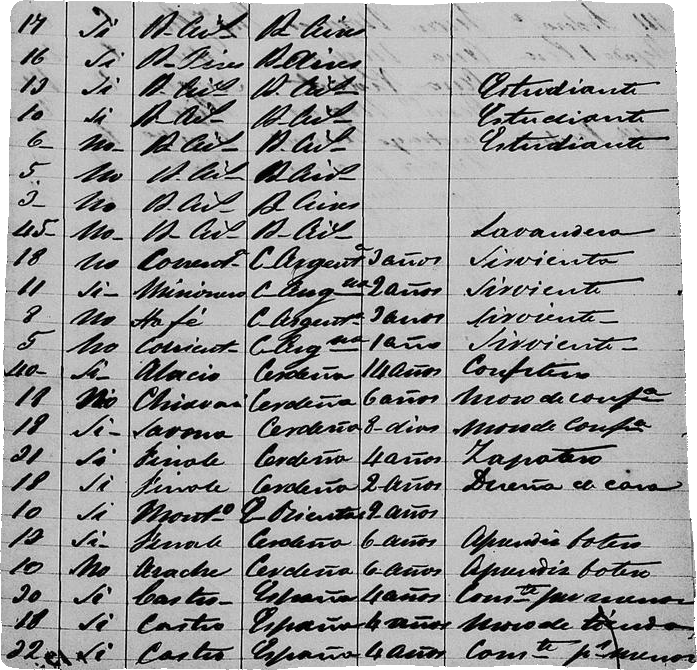 17 Si B. Ais B. Aires
16 Si B. Aires B. Aires
13 Si B. Ais B. Ais Estudiante
10 Si B. Ais B. Ais Estudiante
6 No B. Ais B. Ais Estudiante
5 No B. Ais B. Ais
3 No B. Ais B. Aires
45 No B. Ais B. Ais Lavandera
18 No C. Argentª 3 años Sirvienta
11 Si Misiones C. Argna 2 años Sirviente
8 No Sta fé C. Argentª 3 años Sirviente
5 No Corrient C. Argna 1 año Sirviente
40 Si Alacio Cerdeña 14 años Confitero
18 No Chiavai Cerdeña 6 años Moso de confª
18 Si Savona Cerdeña 8 dias Moso de Confª
21 Si Finale Cerdeña 4 años Zapatero
18 Si Finale Cerdeña 2 años Dueña de casa
10 Si Monto E. Oriental 2 años
12 Si Finale Cerdeña 6 años Aprendis botero
10 No Cerdeña 6 años Aprendis botero
20 Si Castro España 4 años Conste por menor
18 Si Castro España 4 años Moso de tienda
22 Si Castro España 4 años Conste pr menor